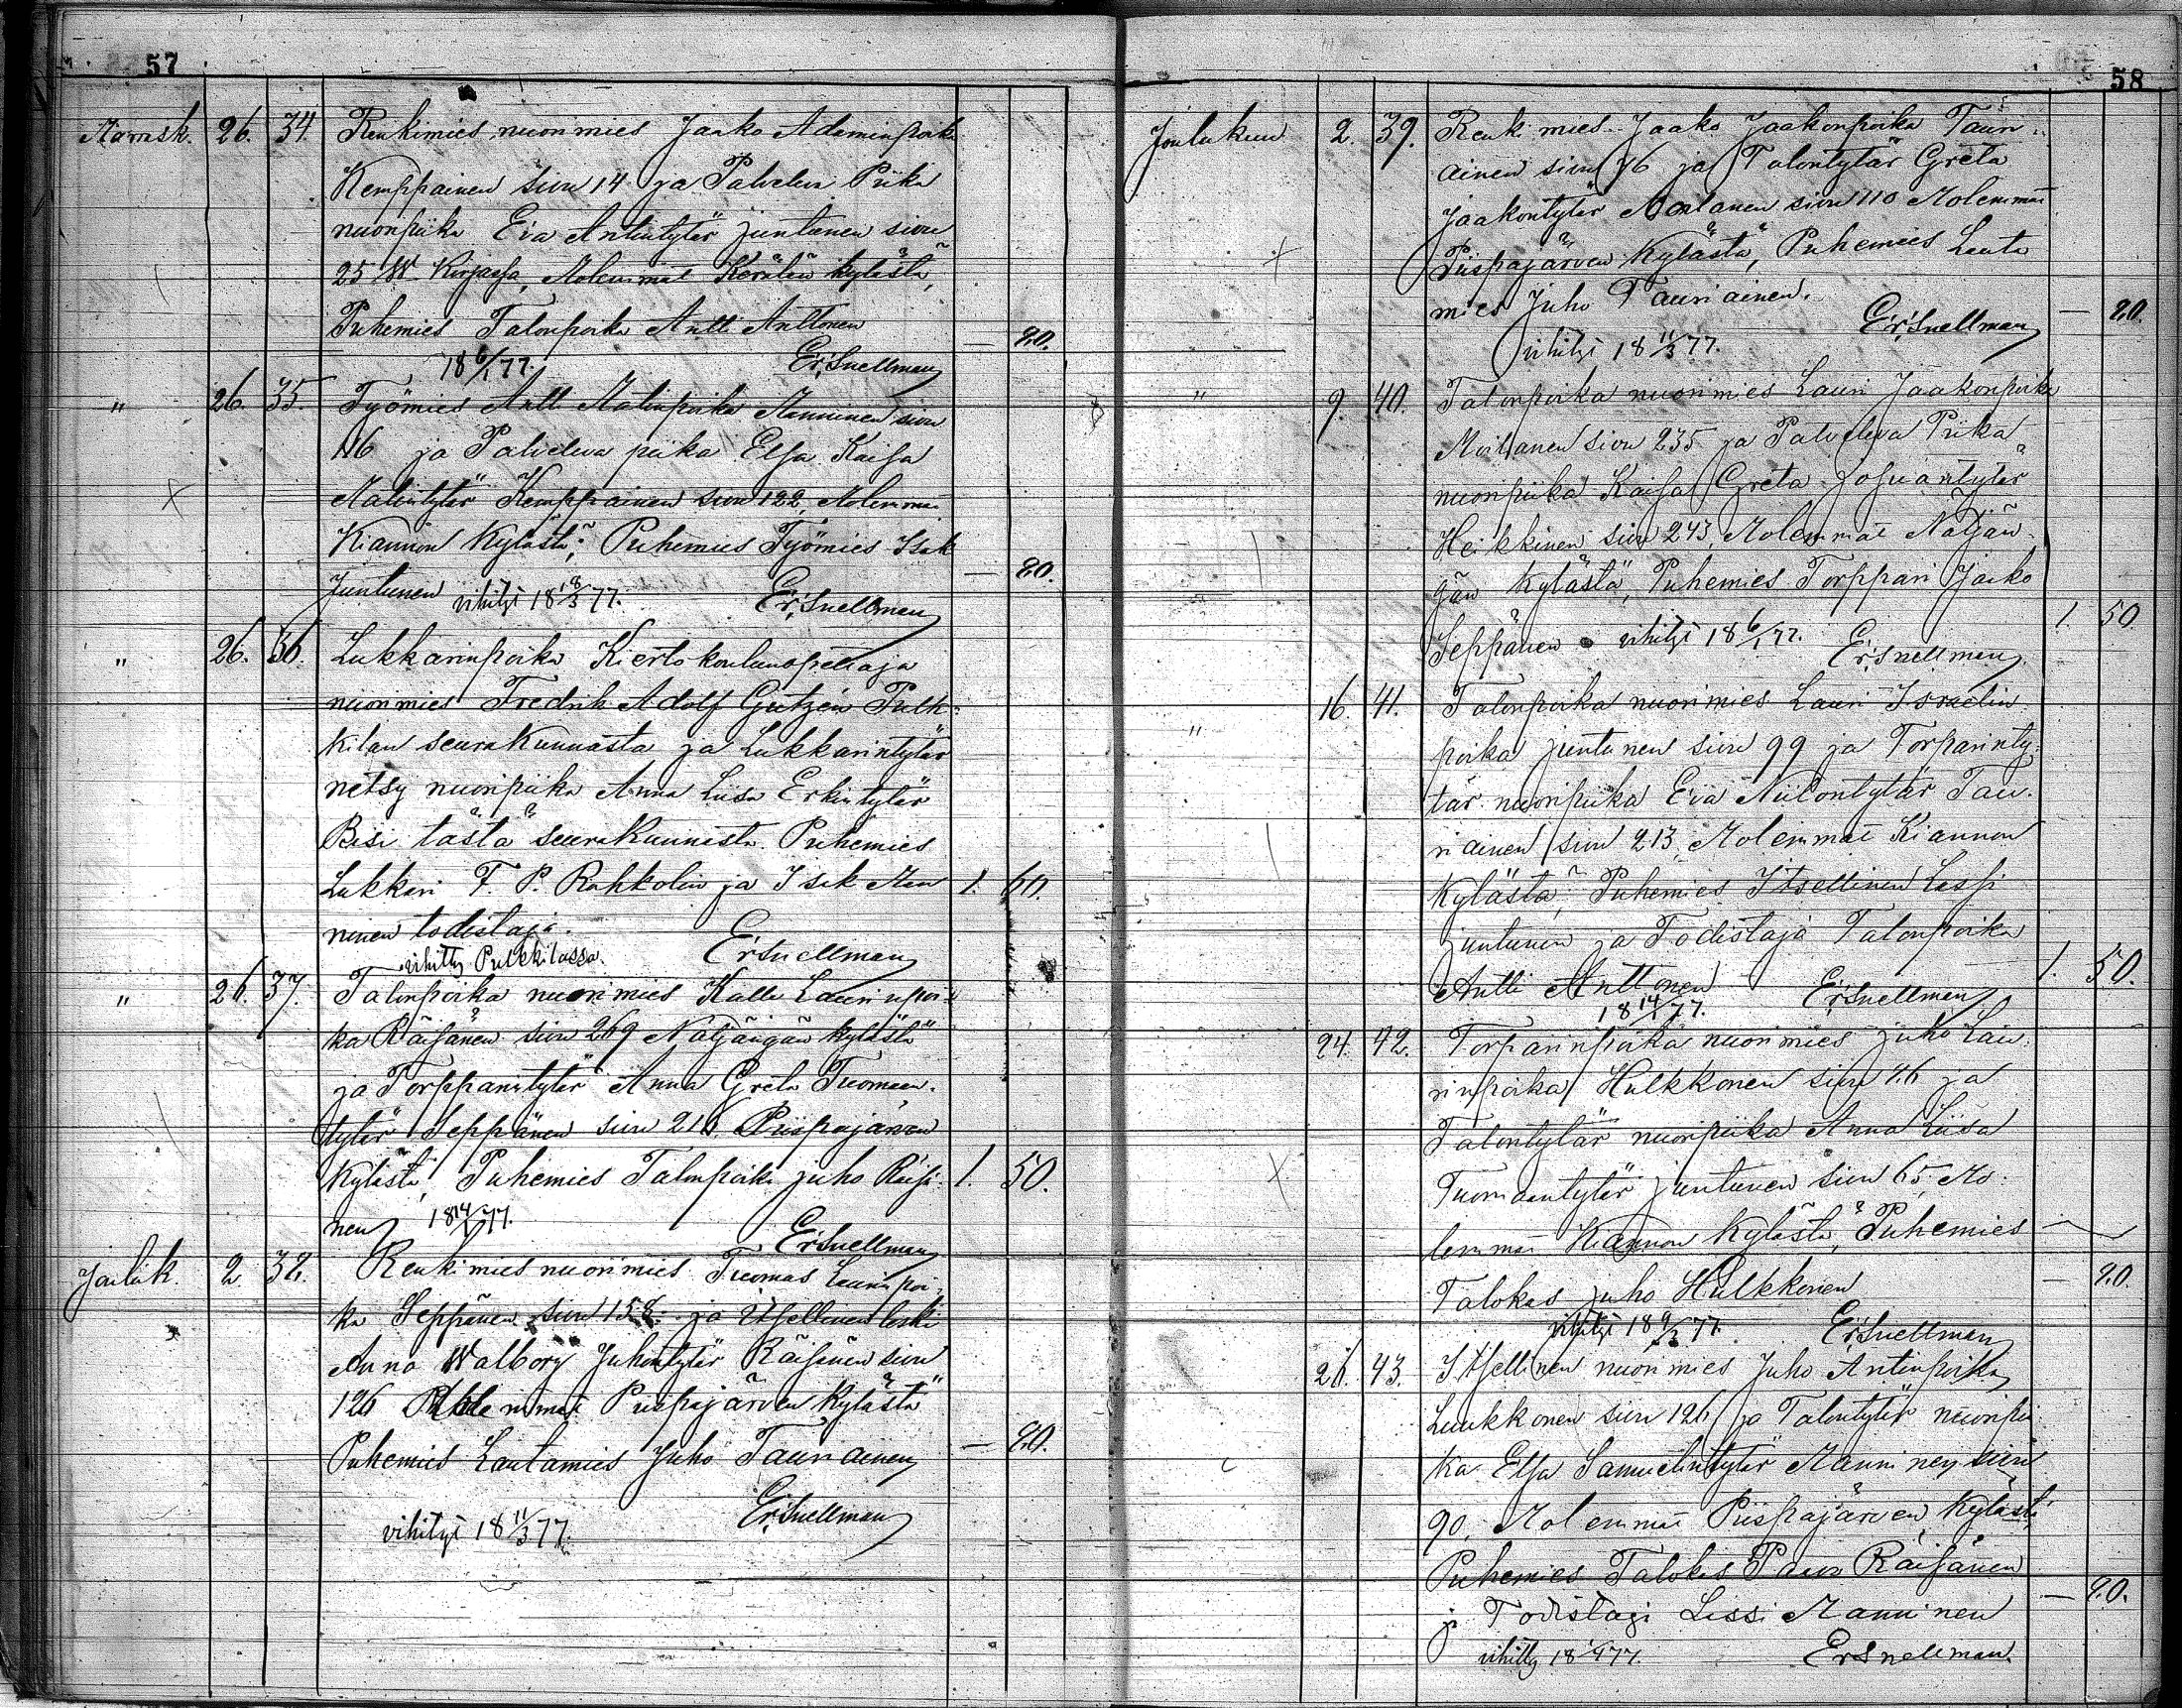 57
Marrask. 26. 34. Renkimies nuorimies Jaako Adaminpoika
Kemppainen sivu 14 ja Palveleva Piika
nuoripiika Eva Antintytär Juntunen sivu
25 W Kirjassa, Molemmat Kerälän kylästä,
Puhemies Talonpoika Antti Anttonen — 80.
18 6/1 77. Er. Snellman
" 26. 35. Työmies Antti Matinpoika Manninen sivu
116 ja Palveleva piika Elsa Kaisa
Matintytär Kemppainen sivu 122, Molemmat
Kiannon Kylästä; Puhemies Työmies Isak
Juntunen vihityt 18 18/3 77. Er. Snellman — 80.
" 26. 36. Lukkarinpoika Kiertokoulunopettaja
nuorimies Fredrik Adolf Gutzén Pulk-
kilan seurakunnasta ja Lukkarintytär
netsy nuoripiika Anna Liisa Erkintytär
Bisi tästä seurakunnasta. Puhemies
Lukkari F. P. Rahkolin ja Isak Man 1. 60.
ninen todistaja.
vihitty Pulkkilassa. Er. Snellman
" 26. 37. Talonpoika nuorimies Kalle Laurinpoi-
ka Räisänen sivu 269 Näljängän kylästä
ja Torpparintytär Anna Greta Tuomaan-
tytär Seppänen sivu 216 Piispajärven
Kylästä, Puhemies Talonpoika Juho Räisä- 1. 50.
nen 18 14/1 77. Er. Snellman
Jouluk. 2 38. Renkimies nuorimies Tuomas Laurinpoi-
ka Seppänen sivu 158 ja Itsellinen leski
Anna Walbory Juhontytär Räisänen sivu
126 Molemmat Piispajärven Kylästä
Puhemies Lautamies Juho Tauriainen — 80.
Er. Snellman
vihityt 18 11/3 77.
58
Joulukuu 2. 39. Renkimies Jaako Jaakonpoika Tauri-
ainen sivu 76 ja Talontytär Greta
Jaakontytär Moilanen sivu 110 Molemmat
Piispajärven Kylästä, Puhemies Lauta
mies Juho Tauriainen.
vihityt 18 11/3 77. Er. Snellman — 80.
" 9. 40. Talonpoika nuorimies Lauri Jaakonpoika
Moilanen sivu 235 ja Palveleva Piika
nuoripiika Kaisa Greta Josuantytär
Heikkinen sivu 243 Molemmat Näljän-
gän kylästä, Puhemies Torppari Jaako
Seppänen vihityt 18 6/1 77. Er. Snellman 1. 50
" 16. 41. Talonpoika nuorimies Lauri Israelin
poika Juntunen sivu 99 ja Torparinty-
tär nuoripiika Eva Niilontytär Tau-
riainen sivu 213, Molemmat Kiannon
Kylästä, Puhemies Itsellinen Lassi
Juntunen ja Todistaja Talonpoika
Antti Anttonen 1. 50.
18 14/1 77. Er. Snellman
24. 42. Torparinpoika nuorimies Juho Lau-
rinpoika Hulkkonen sivu 46 ja
Talontytär nuoripiika Anna Liisa
Tuomaantytär Juntunen sivu 65, Mo-
lemmat Kiannon Kylästä, Puhemies
Talokas Juho Hulkkonen — 80.
vihityt 18 9/2 77. Er. Snellman
26. 43. Itsellinen nuorimies Juho Antinpoika
Luukkonen sivu 126 ja Talontytär nuoripii
ka Elsa Samuelintytär Manninen sivu
90, Molemmat Piispajärven Kylästä
Puhemies Talokas Paavo Räisänen
ja Todistaja Lassi Manninen — 80.
vihitty 18 1/4 77. Er Snellman.